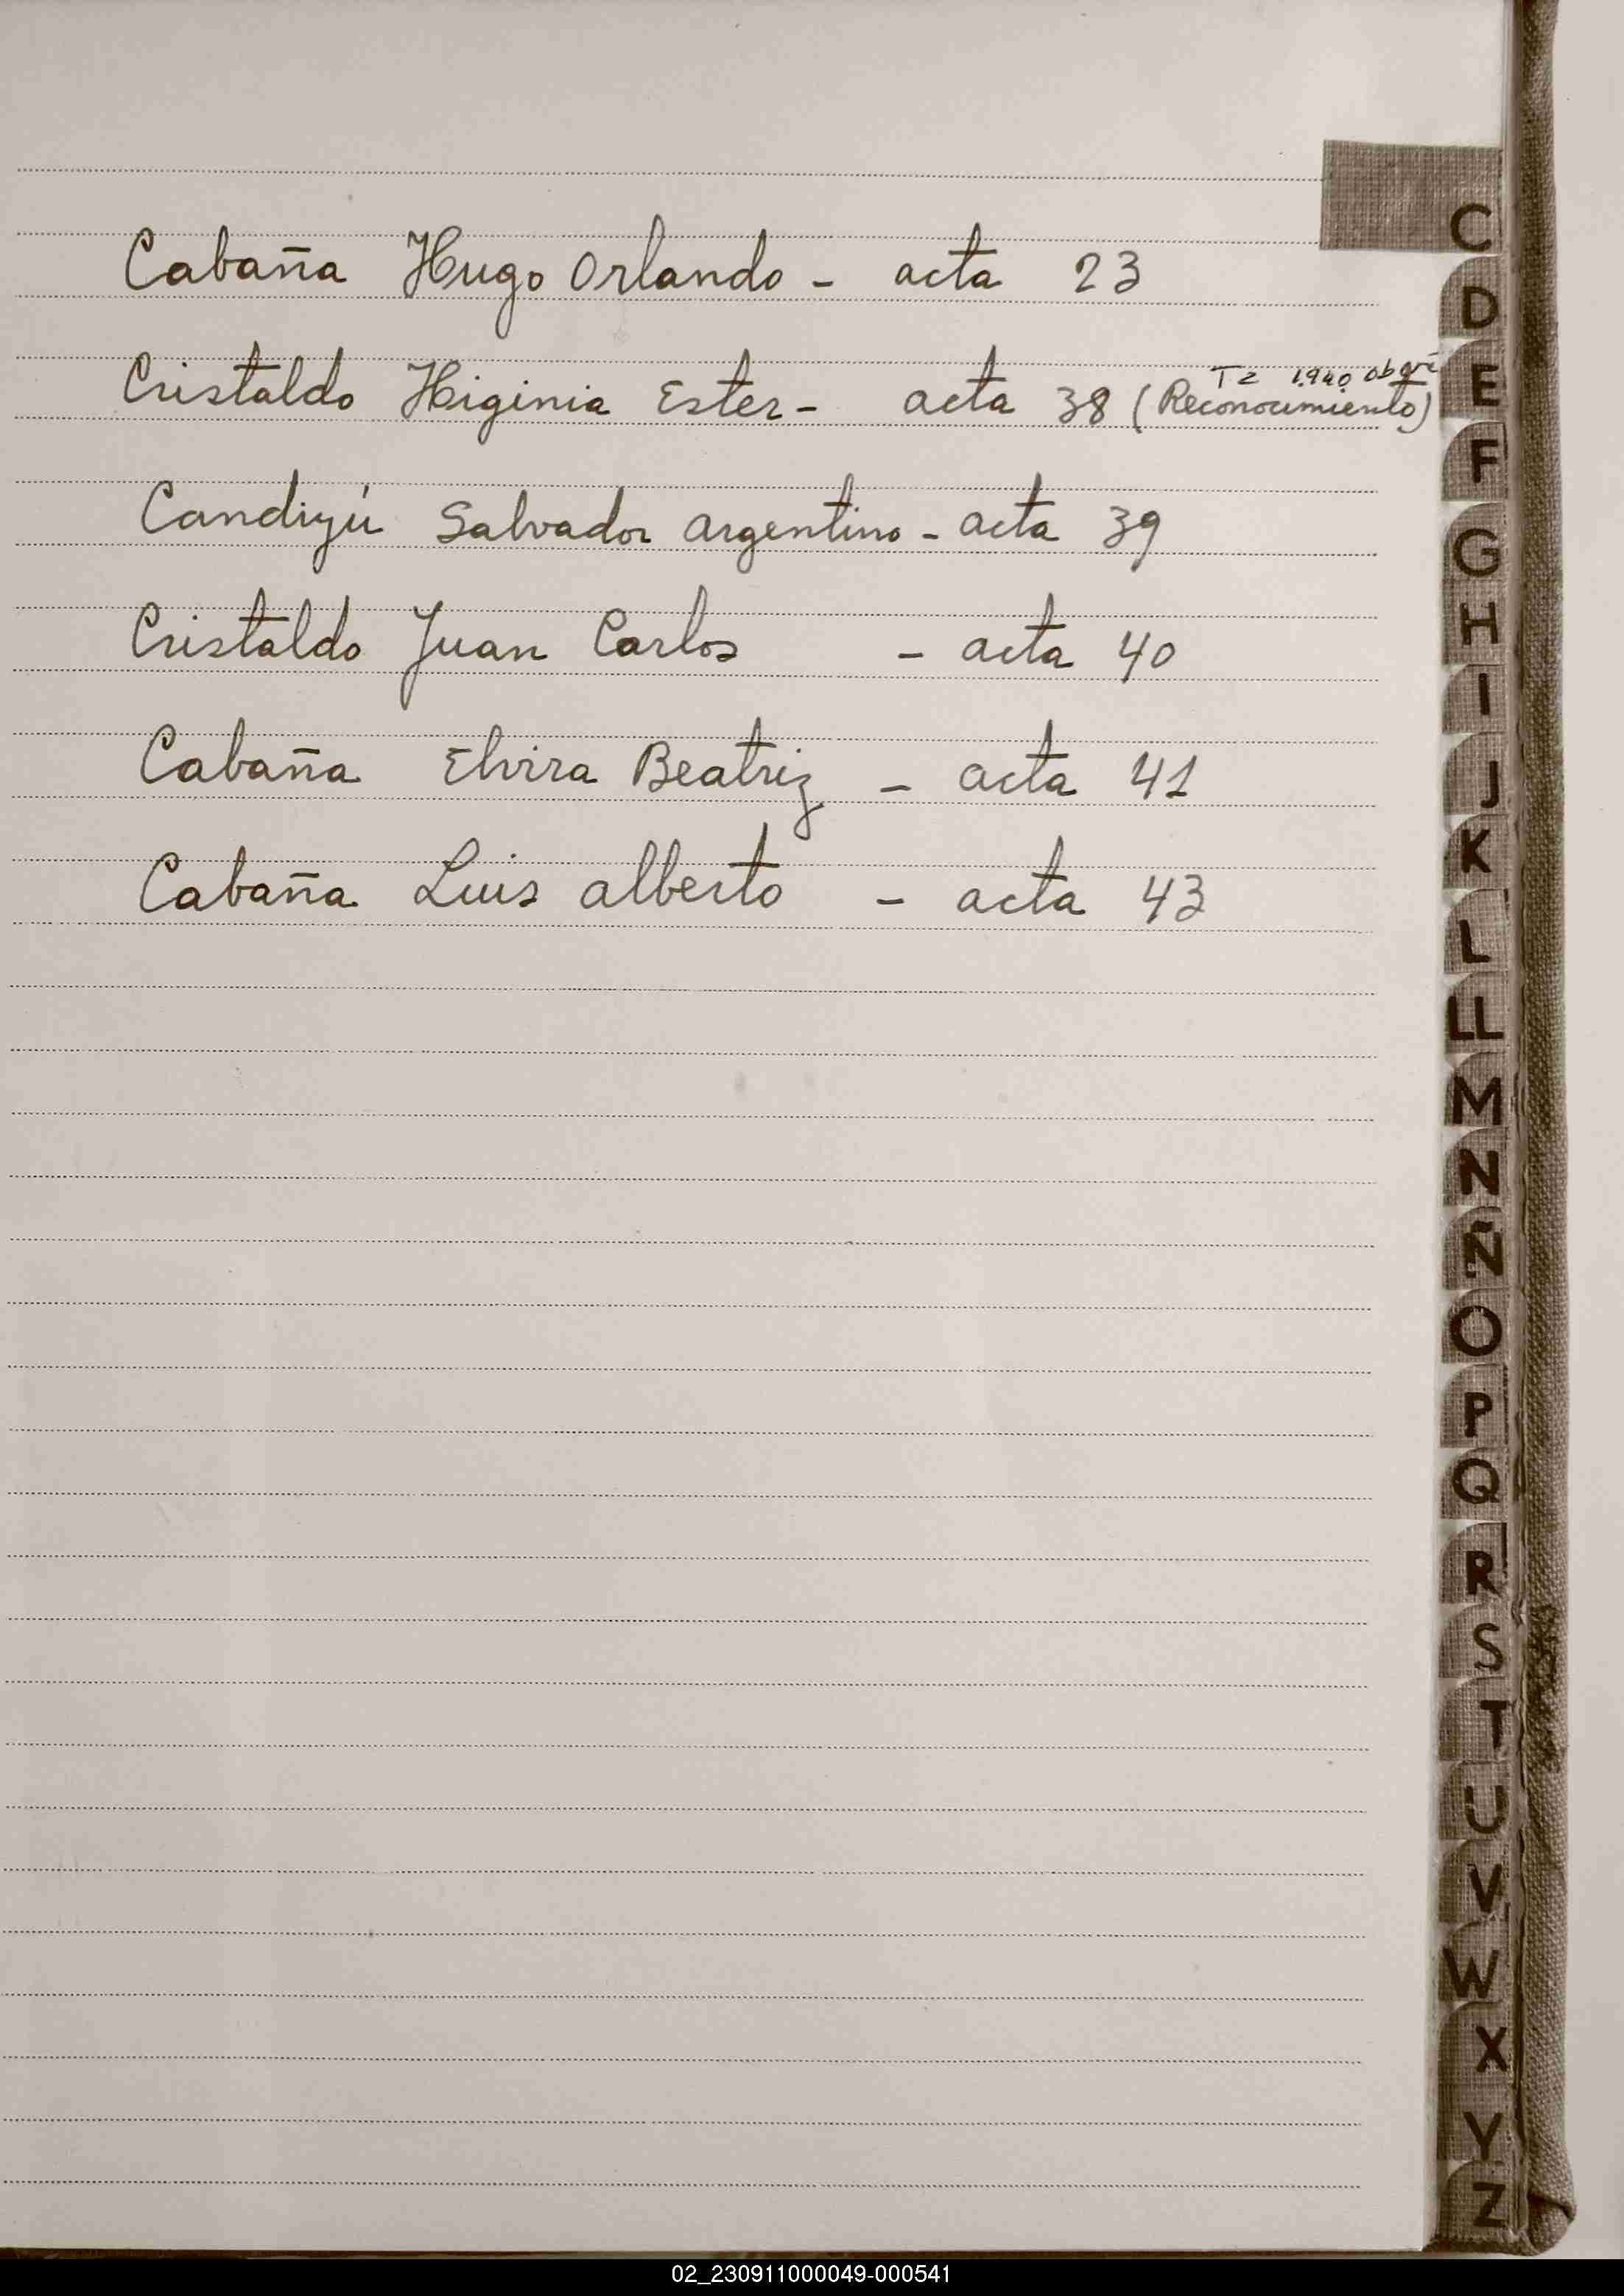 C
Cabaña Hugo Orlando - acta 23
T2 1.940 Oberá
Cristaldo Higinia Ester - acta 38 (Reconocimiento)
Candiyú Salvador Argentino - acta 39
Cristaldo Juan Carlos - acta 40
Cabaña Elvira Beatriz - acta 41
Cabaña Luis Alberto - acta 43
D
E
F
G
H
I
J
K
L
LL
M
N
Ñ
O
P
Q
R
S
T
U
V
W
X
Y
Z
02_230911000049-000541